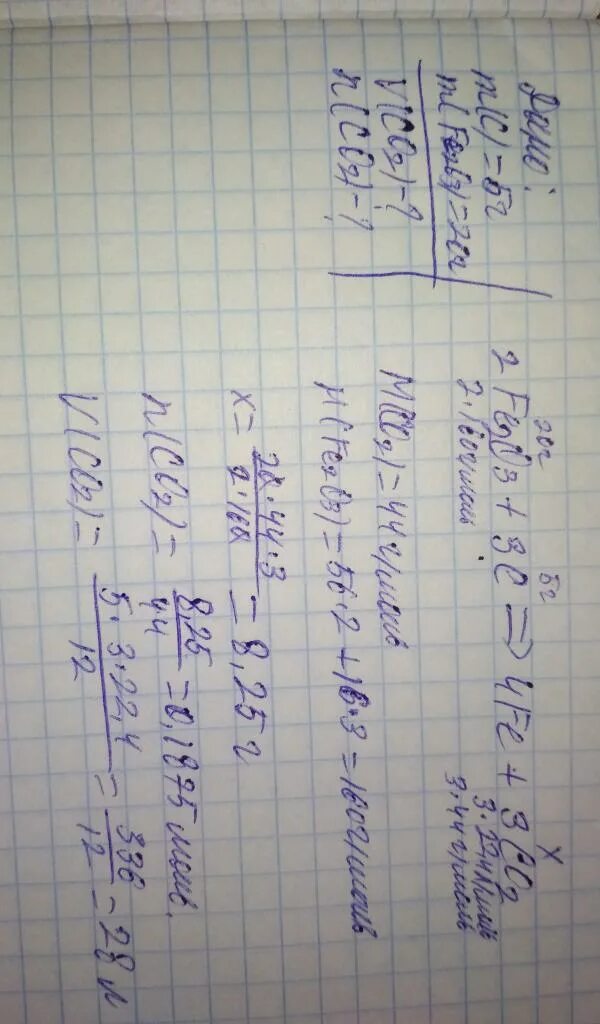 Дано:
m(C)=5г
m(Fe2O3)=20г
V(CO2)-?
n(CO2)-?
20г 5г x
2Fe2O3 + 3C => 4Fe + 3CO2
2·160г/моль 3·22,4л/моль
3·44г/моль
M(CO2)=44г/моль
M(Fe2O3)=56·2+16·3=160г/моль
x= 20·44·3 / 2·160 = 8,25г
n(CO2)= 8,25 / 44 =0,1875моль.
V(CO2)= 5·3·22,4 / 12 = 336 / 12 = 28л